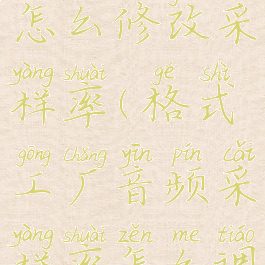 怎么修改采
yàng shuài gé shì
样率(格式
gōng chǎng yīn pín cǎi
工厂音频采
yàng shuài zěn me tiáo
样率怎么调